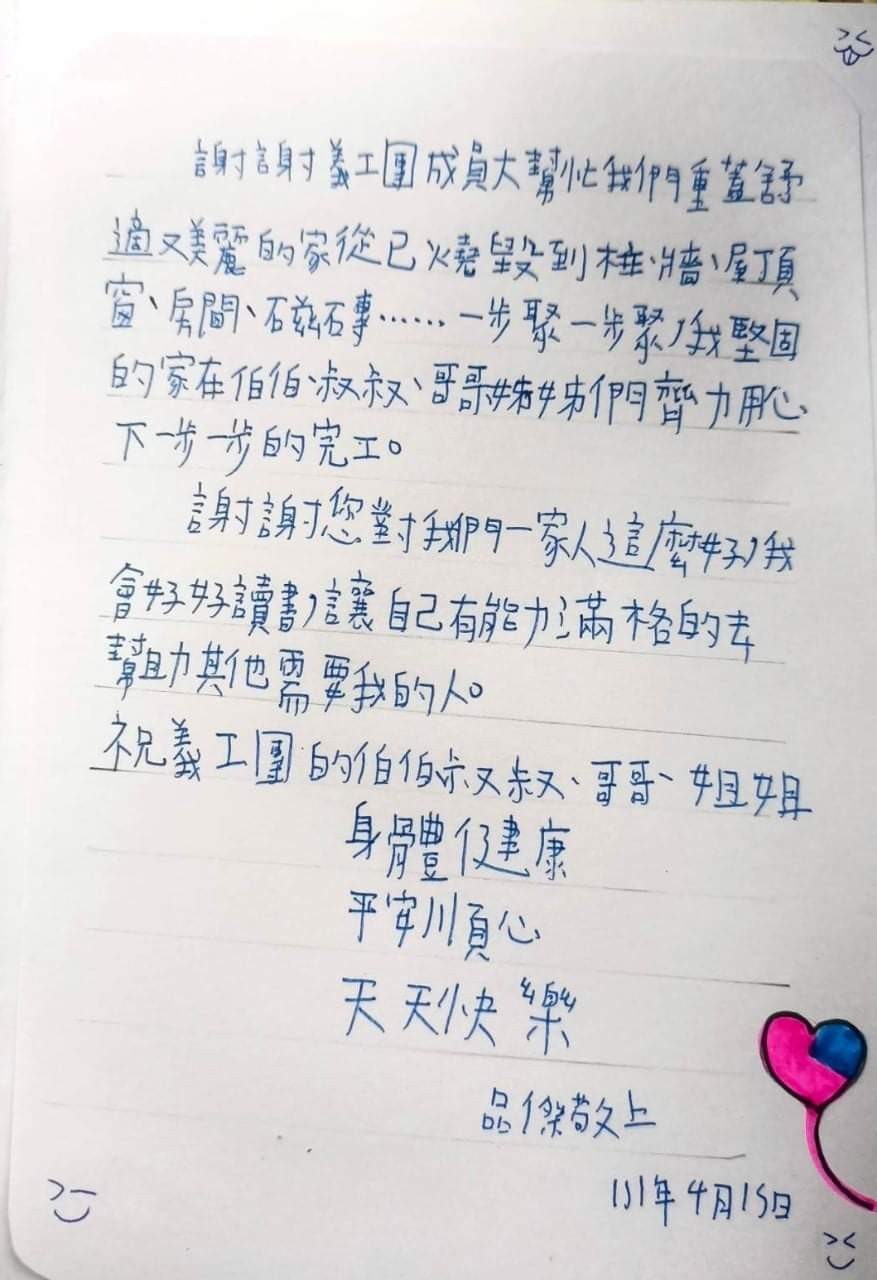 謝謝義工團成員大幫忙我們重蓋舒
適又美麗的家從已燒毀到柱、牆、屋頂
窗、房間、磁磚……一步聚一步聚,我堅固
的家在伯伯、叔叔、哥哥姊姊們齊力用心
下一步一步的完工。
謝謝您對我們一家人這麼好,我
會好好讀書,讓自己有能力滿格的去
幫助其他需要我的人。
祝義工團的伯伯叔叔、哥哥、姐姐
身體健康
平安順心
天天快樂
品傑敬上
111年4月15日